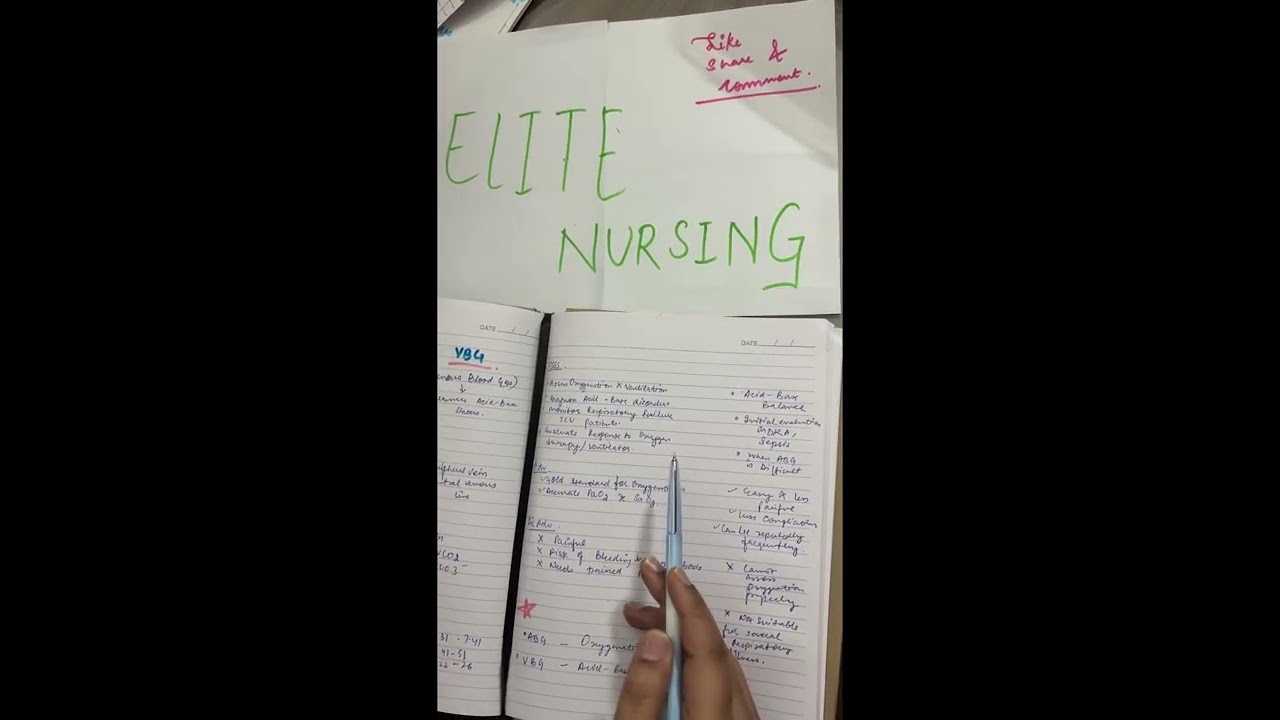 Like
Share &
Comment.
ELITE
NURSING
DATE / /
VBG
Blood Gas)
Acid-Base
vein
venous
line
31 - 7.41
41-51
22-26
DATE / /
Uses
Assess Oxygenation & Ventilation
Diagnose Acid-Base disorders
Monitor Respiratory failure
ICU patients.
Evaluate Response to Oxygen
therapy/ventilator.
Adv.
✓ Gold standard for
✓ Accurate PaO2 & SaO2.
Dis Adv.
X Painful
X Risk of Bleeding
X Needs
• ABG -
• VBG - Acid-
• Acid-Base
Balance
• Initial evaluation
in DKA,
Sepsis
• When ABG
is Difficult
✓ Easy & less
painful
✓ Less Complications
✓ Can be repeatedly
frequently.
X Cannot
assess
Oxygenation
properly
X Not Suitable
for several
Respiratory
illness.